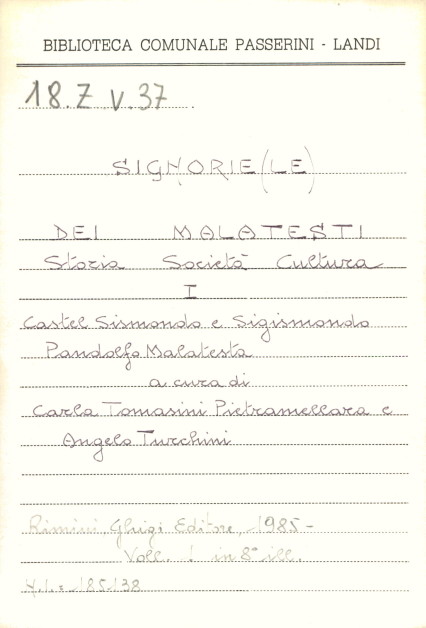 BIBLIOTECA COMUNALE PASSERINI - LANDI
18.Z V.37
SIGNORIE (LE)
DEI MALATESTI
Storia Società Cultura
I
Castel Sismondo e Sigismondo
Pandolfo Malatesta
a cura di
Carla Tomasini Pietramellara e
Angelo Turchini
Rimini, Ghigi Editore, 1985-
Voll. 1 in 8° ill.
185138